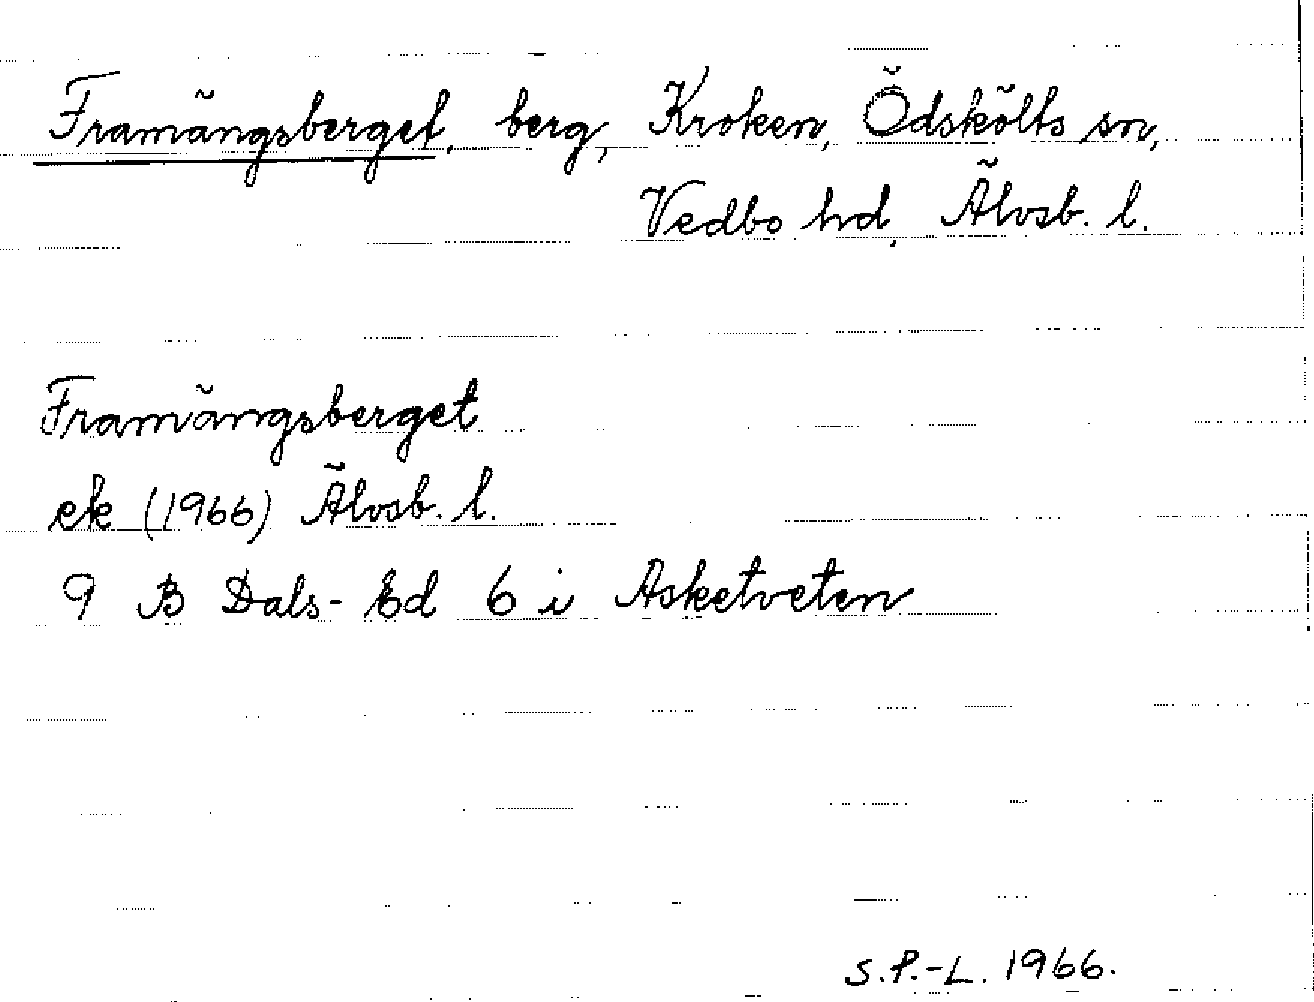 Framängsberget, berg, Kroken, Ödskölts sn,
Vedbo hd, Älvsb. l.
Framängsberget
ek (1966) Älvsb. l.
9 B Dals-Ed 6 i Asketveten
S.P.-L. 1966.